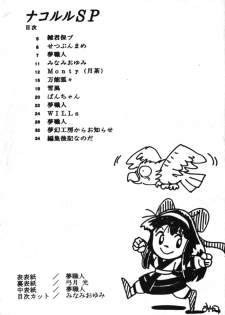 ナコルルSP
目次
5 雑君保プ
6 せつぶんまめ
7 夢職人
11 みなみおゆみ
12 Monty(月茶)
13 万能狐々
19 雪風
20 ぱんちゃん
22 夢職人
24 WILLs
28 夢職人
32 夢幻工房からお知らせ
34 編集後記なのだ
表表紙/夢職人
裏表紙/弓月 光
中表紙/夢職人
目次カット/みなみおゆみ